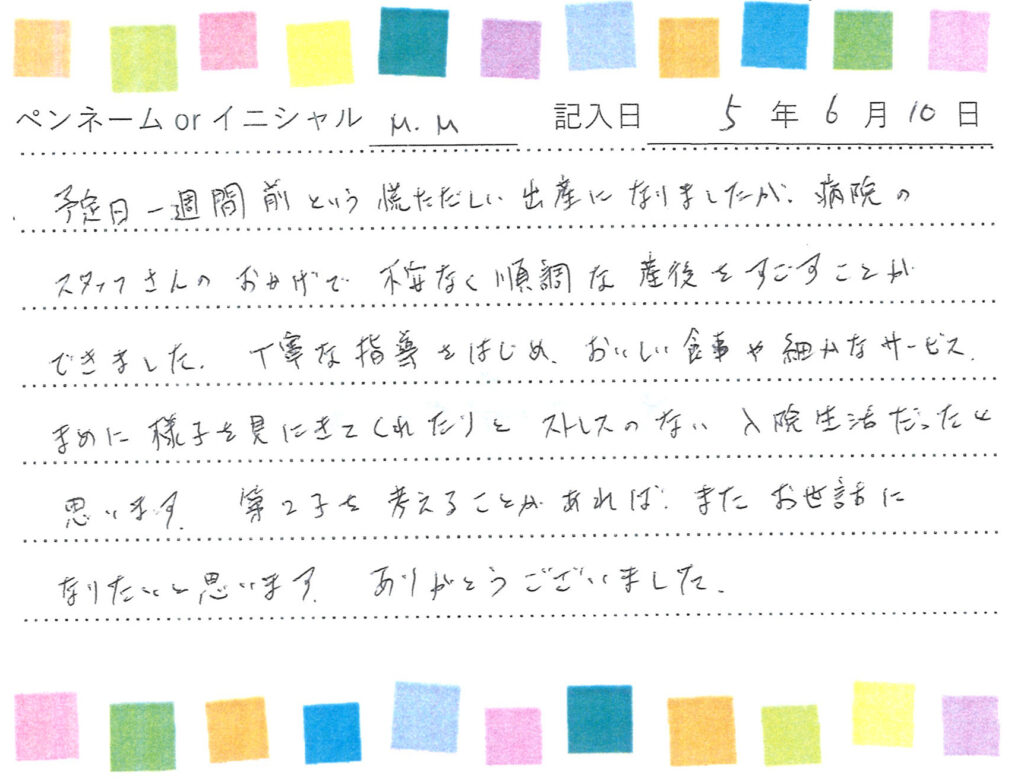 ペンネーム or イニシャル M.M 記入日 5 年 6 月 10 日
予定日一週間前という慌ただしい出産になりましたが、病院の
スタッフさんのおかげで不安なく順調な産後をすごすことが
できました。丁寧な指導をはじめ、おいしい食事や細かなサービス、
まめに様子を見にきてくれたりとストレスのない入院生活だったと
思います。第2子を考えることがあれば、またお世話に
なりたいと思います。ありがとうございました。